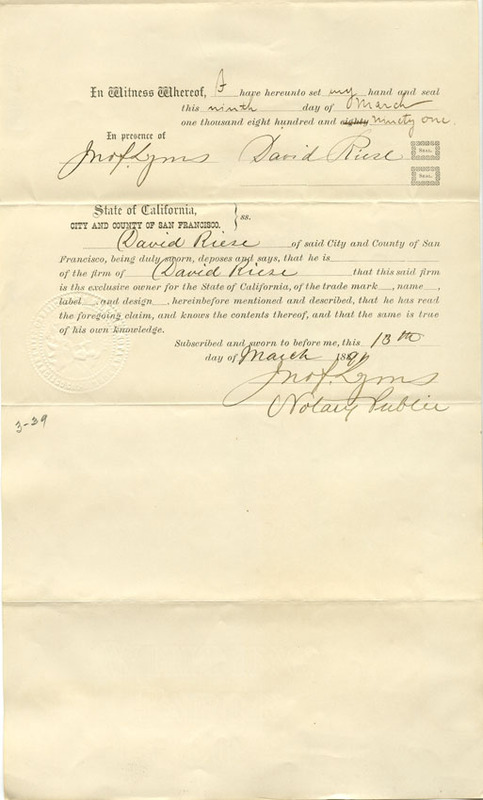 In Witness Whereof, I have hereunto set my hand and seal
this ninth day of March
one thousand eight hundred and eighty ninety one.
In presence of
Jno. f. Lyons David Riese SEAL.
SEAL.
State of California,
CITY AND COUNTY OF SAN FRANCISCO. } ss.
David Riese of said City and County of San
Francisco, being duly sworn, deposes and says, that he is
of the firm of David Riese that this said firm
is the exclusive owner for the State of California, of the trade mark , name ,
label , and design , hereinbefore mentioned and described, that he has read
the foregoing claim, and knows the contents thereof, and that the same is true
of his own knowledge.
Subscribed and sworn to before me, this 13th
day of March 1891
Jno. f. Lyons
Notary Public
3-29